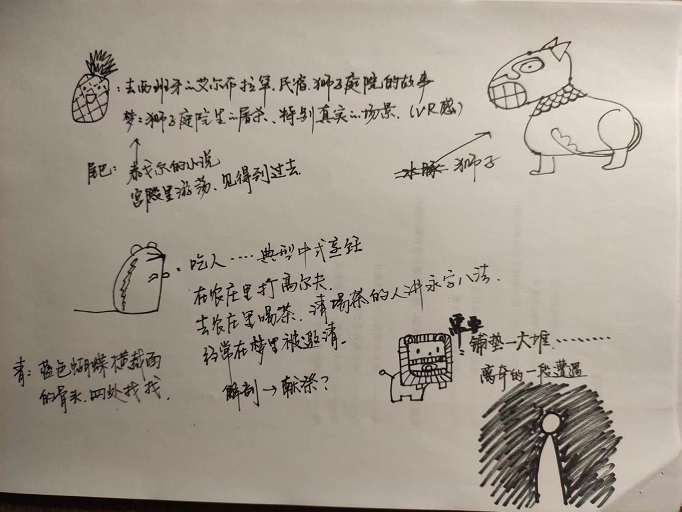 ：去西班牙的艾尔布拉罕．民宿．狮子庭院的故事
梦：狮子庭院里的屠杀、特别真实的场景．(VR感)
尾巴：看戈尔的小说
宫殿里游荡、见得到过去．
水豚 狮子
：吃人……典型中式烹饪
在农庄里打高尔夫．
去农庄里喝茶．请喝茶的人讲永字八法．
经常在梦里被邀请．
解剖→献祭？
青：蓝色蝴蝶横截面
的骨头．四处找找．
：铺垫一大堆………
离奇的一段遭遇